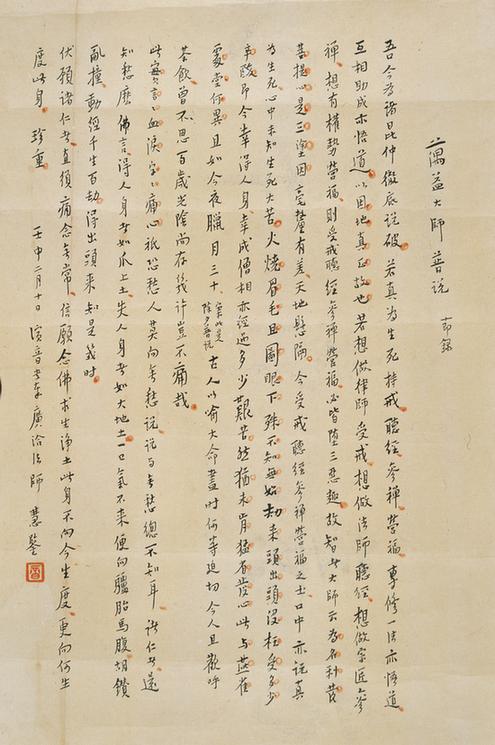 蕅益大師普說　節錄
吾今為諸昆仲徹底說破若真為生死持戒聽經參禪營福專修一法亦悟道
互相助成亦悟道以因地真正故也若想做律師受戒想做法師聽經想做宗匠參
禪想有權勢營福則受戒聽經參禪營福必皆隨三惡趣故智者大師云為名利發
菩提心是三塗因毫釐有差天地懸隔今受戒聽經參禪營福之士口中亦說真
為生死心中未知生死大苦火燒眉毛且圖眼下殊不知無始劫來頭出頭沒枉受多少
辛酸即今幸得人身幸成僧相亦經過多少艱苦然猶未肯猛省發心此與燕雀
處堂何異且如今夜臘月三十案此是除夕普說古人以喻大命盡時何等迫切今人且歡呼
茶飲曾不思百歲光陰尚存幾許豈不痛哉
此實言言血淚字字痛心祇恐愁人莫向無愁說說與無愁總不知耳諸仁者還
知愁麼佛言得人身者如爪上土失人身者如大地土一口氣不來便向驢胎馬腹胡鑽
亂撞動經千生百劫得出頭來知是幾時
伏願諸仁者直須痛念無常信願念佛求生淨土此身不向今生度更向何生
度此身　珍重　壬申二月十日演音書奉廣洽法師　慧鑒